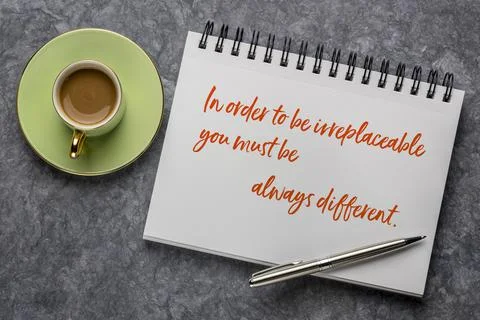 In order to be irreplaceable
you must be
always different.